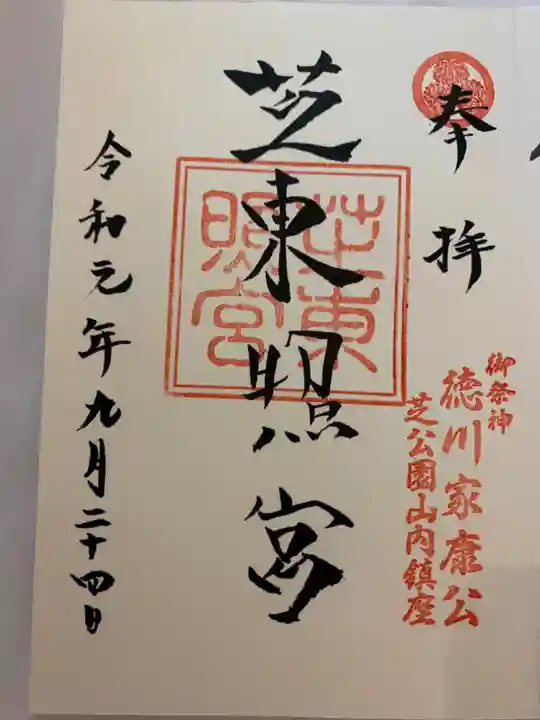 奉拝
御祭神
徳川家康公
芝公園山内鎮座
芝東照宮
芝東照宮
令和元年九月二十四日